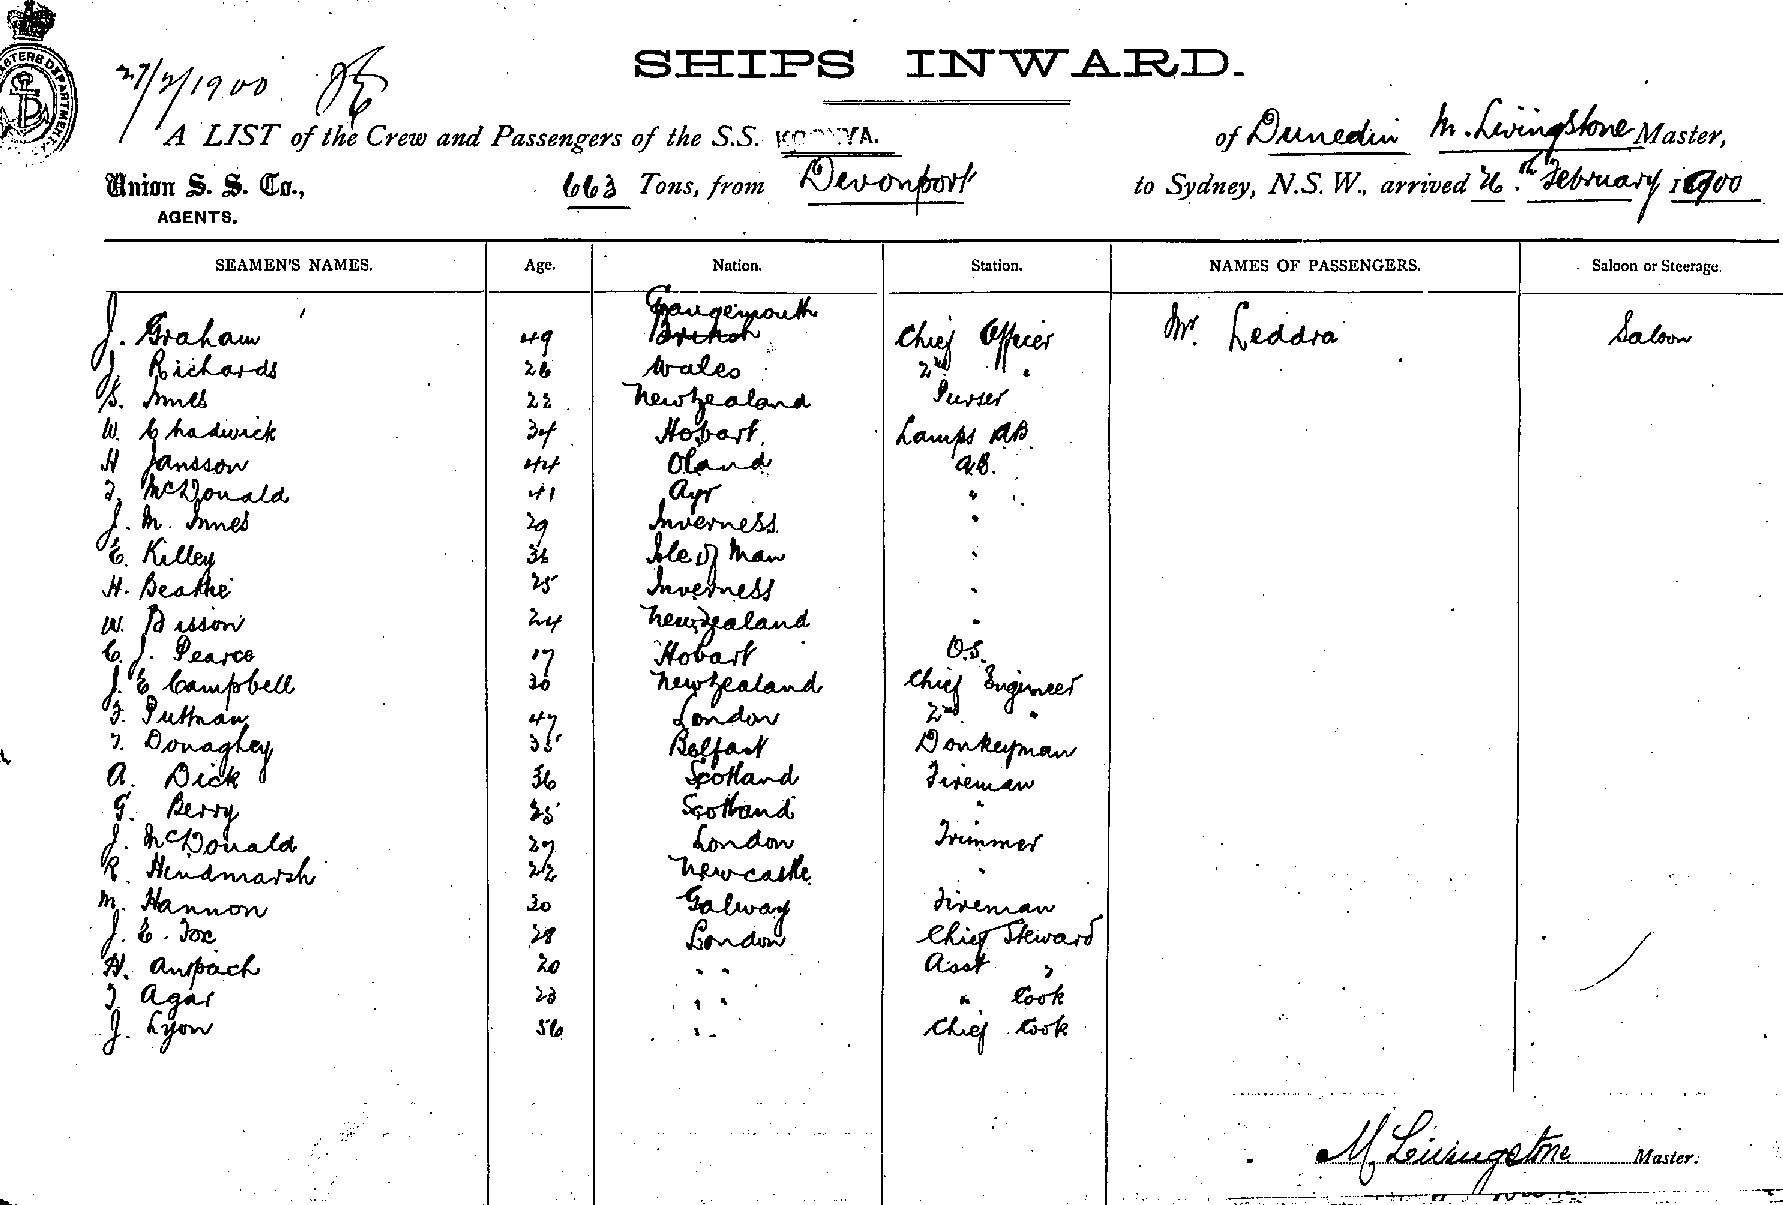 27/2/1900
SHIPS INWARD.
A LIST of the Crew and Passengers of the S.S. of Dunedin M. Livingstone Master,
Union S. S. Co., 663 Tons, from Devonport to Sydney, N.S.W., arrived 26th February 1900
AGENTS.
SEAMEN'S NAMES. Age. Nation. Station. NAMES OF PASSENGERS. Saloon or Steerage.
Grangemouth
J. Graham 49 British Chief Officer Mr. Leddra Saloon
J. Richards 26 Wales 2nd "
S. Innes 22 New Zealand Purser
W. Chadwick 34 Hobart Lamps AB
H Jansson 44 Oland A.B.
McDonald 41 Ayr "
J. M. Innes 29 Inverness "
E. Killey 36 Isle of Man "
H. Beattie 25 Inverness "
W. Bisson 24 New Zealand "
C. J. Pearce 17 Hobart O.S.
J. E Campbell 30 New Zealand Chief Engineer
Puttman 47 London 2nd "
Donaghey 35 Belfast Donkeyman
A. Dick 36 Scotland Fireman
G. Berry 25 Scotland "
J. McDonald 27 London Trimmer
R. Hindmarsh 22 Newcastle "
M. Hannon 30 Galway Fireman
J. E. Fox 28 London Chief Steward
H. Anspach 20 " " Asst "
Agar 23 " " " Cook
J. Lyon 56 " " Chief Cook
M Livingstone Master.